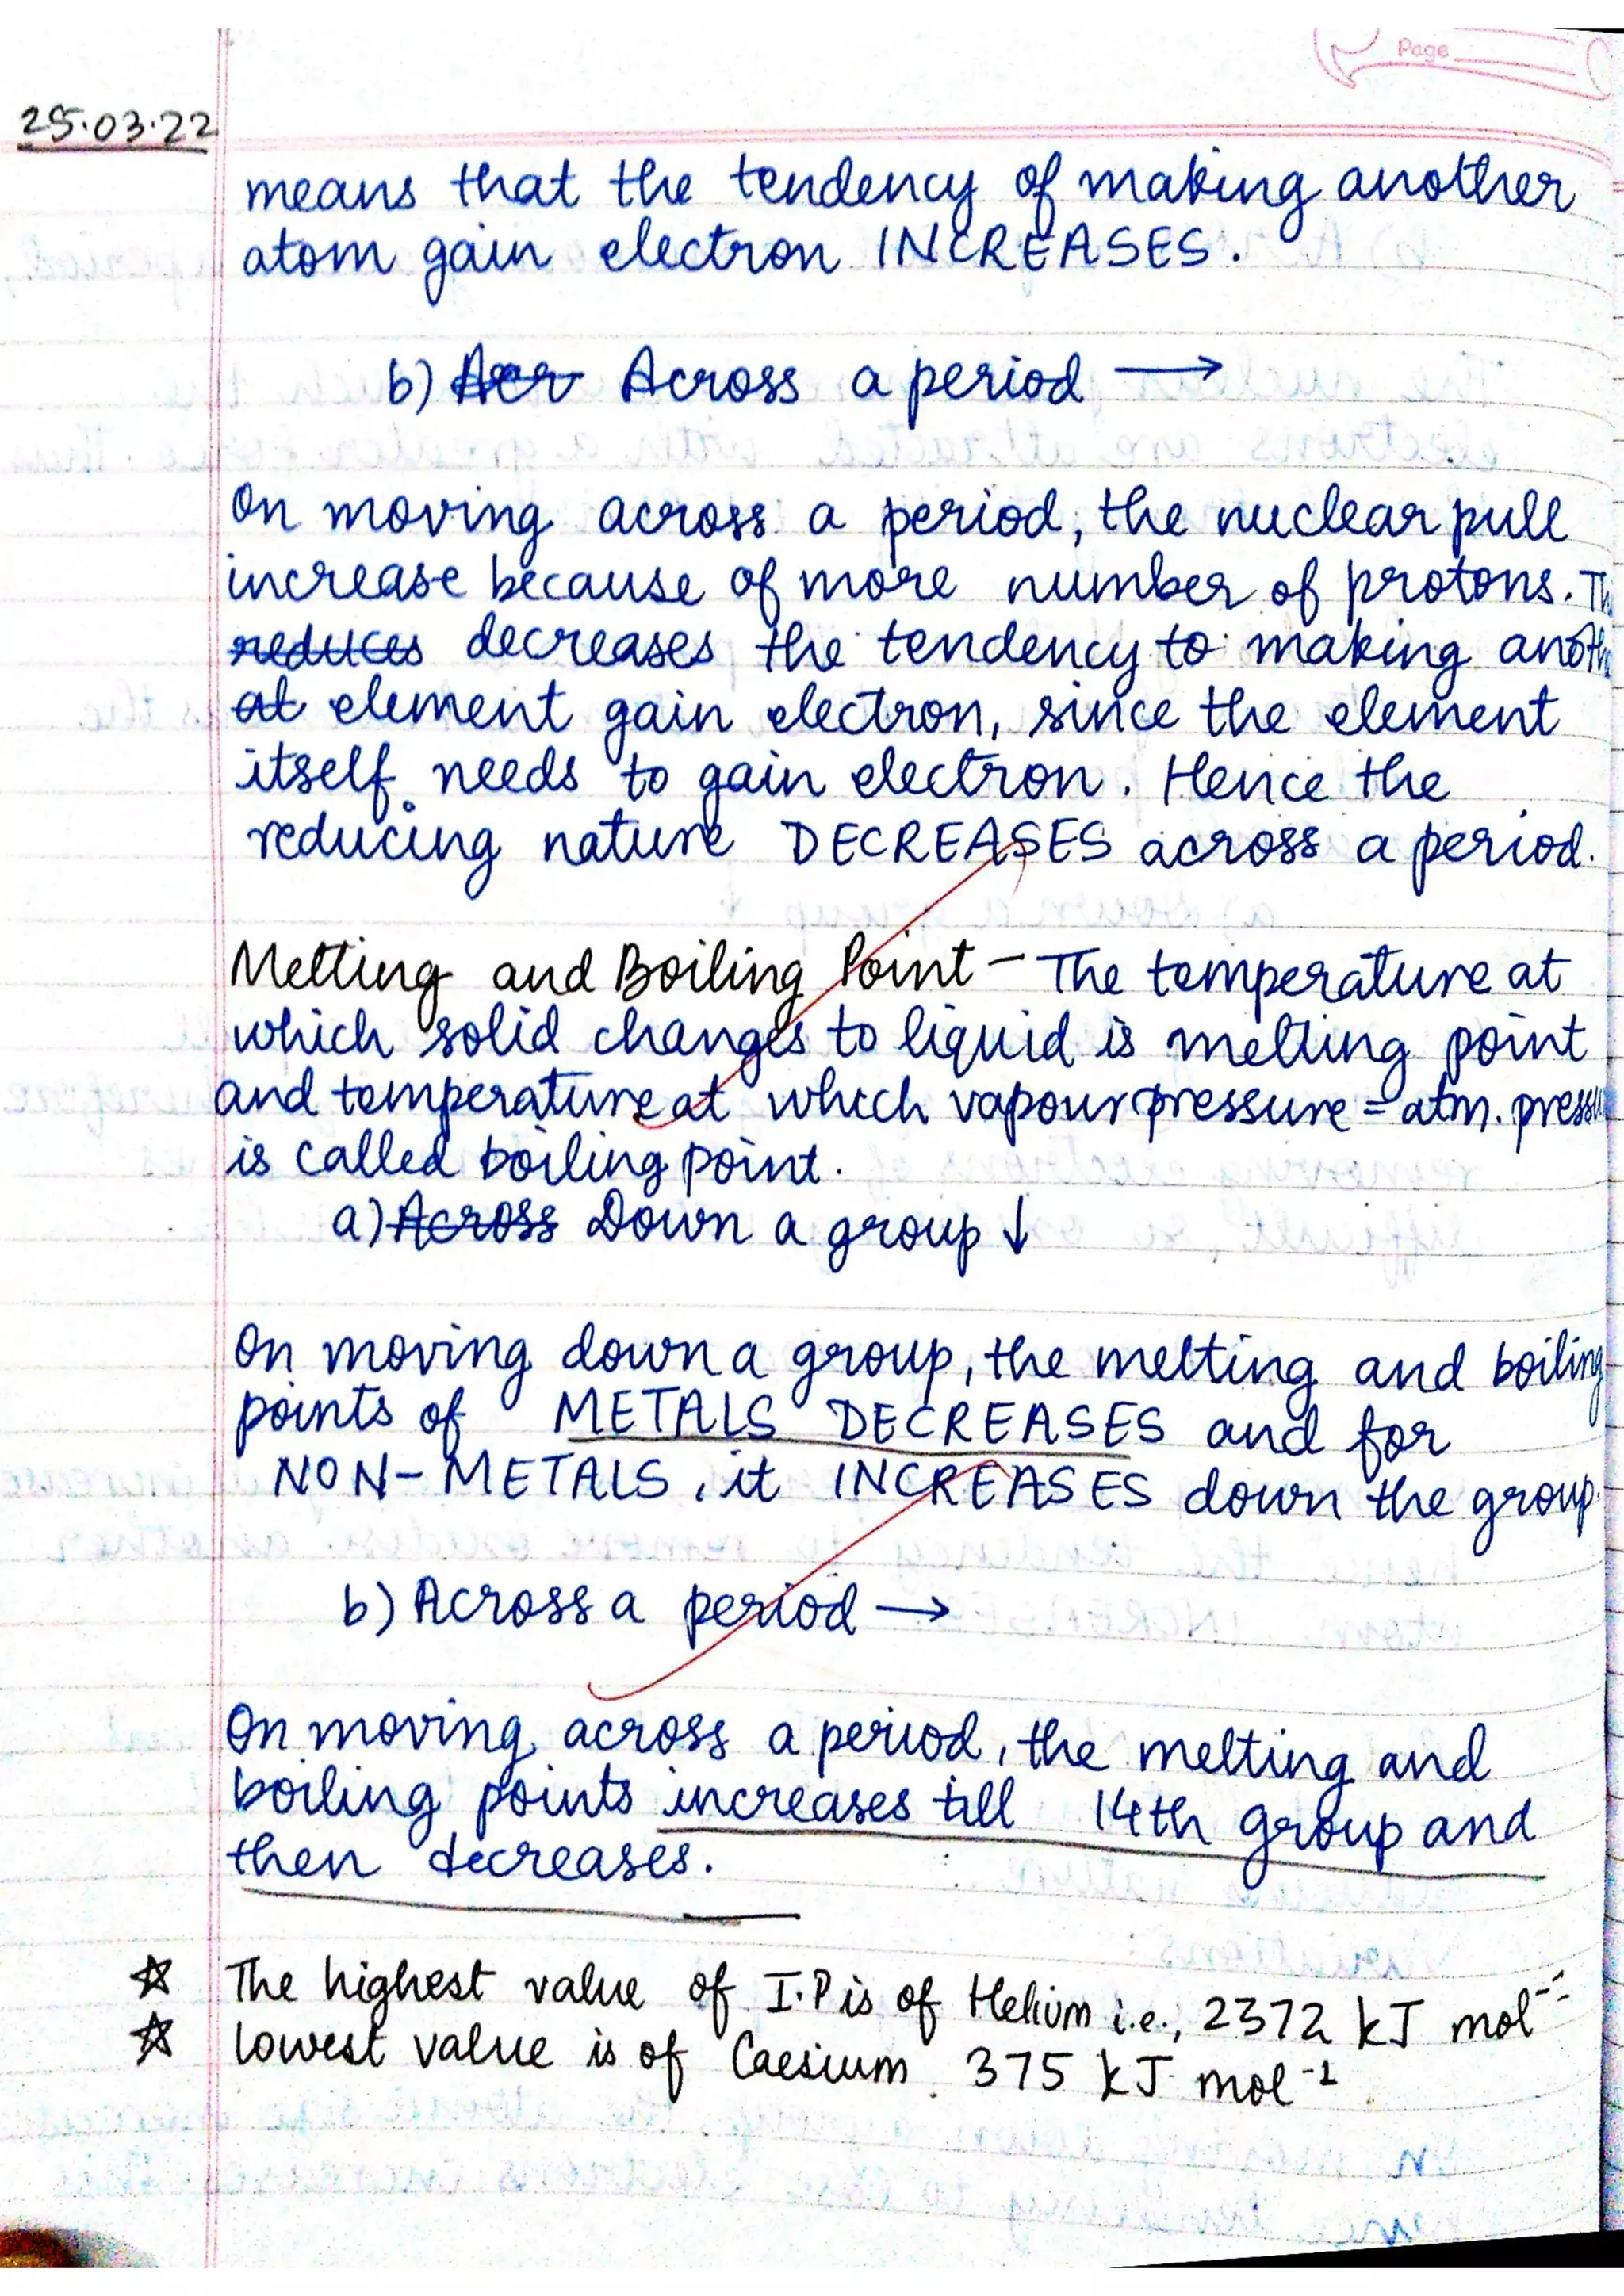 Page
25.03.22
means that the tendency of making another
atom gain electron INCREASES.
b) Acr Across a period →
On moving across a period, the nuclear pull
increase because of more number of protons.
reduces decreases the tendency to making
at element gain electron, since the element
itself needs to gain electron. Hence the
reducing nature DECREASES across a period.
Melting and Boiling Point - The temperature at
which solid changes to liquid is melting point
and temperature at which vapour pressure = atm.
is called boiling point.
a) Across Down a group ↓
On moving down a group, the melting and boiling
points of METALS DECREASES and for
NON-METALS, it INCREASES down the group.
b) Across a period →
On moving across a period, the melting and
boiling points increases till 14th group and
then decreases.
☆ The highest value of I.P is of Helium i.e., 2372 kJ mol
☆ lowest value is of Caesium. 375 kJ mol⁻¹